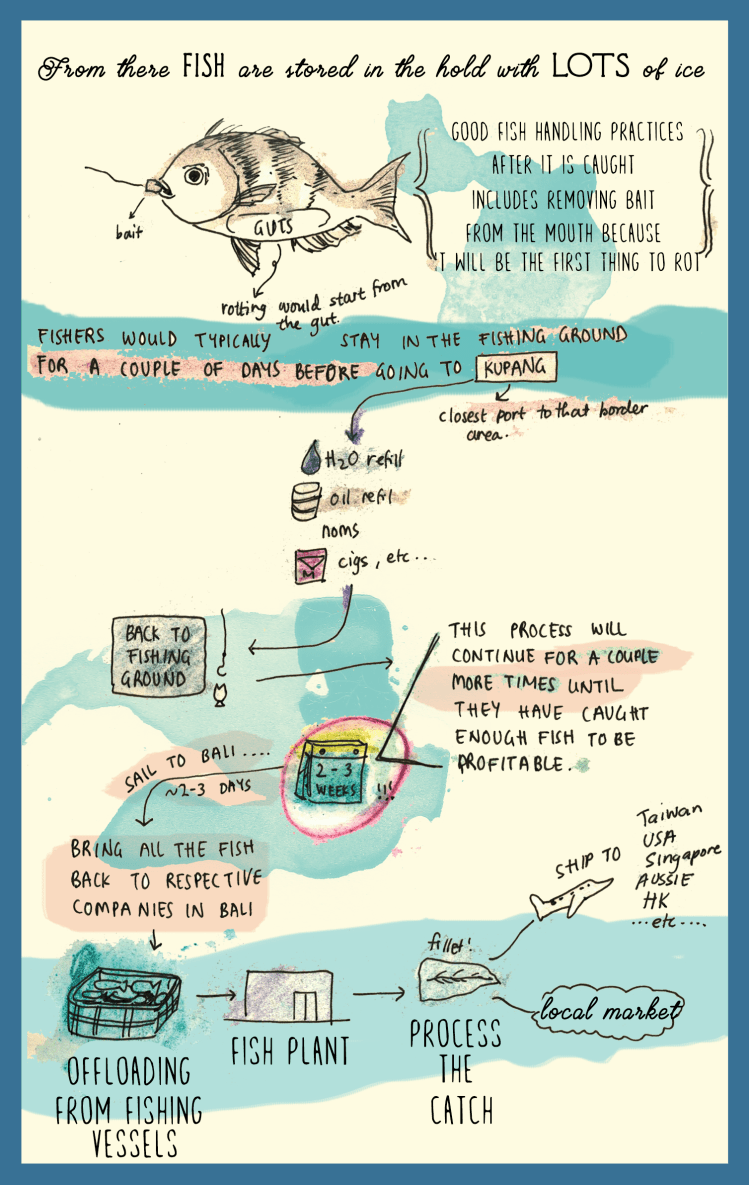 From there FISH are stored in the hold with LOTS of ice
GOOD FISH HANDLING PRACTICES
AFTER IT IS CAUGHT
INCLUDES REMOVING BAIT
FROM THE MOUTH BECAUSE
IT WILL BE THE FIRST THING TO ROT
bait
GUTS
rotting would start from
the gut.
FISHERS WOULD TYPICALLY STAY IN THE FISHING GROUND
FOR A COUPLE OF DAYS BEFORE GOING TO KUPANG
closest port to that border
area.
H2O refill
oil refil
noms
M
cigs, etc...
BACK TO
FISHING
GROUND
THIS PROCESS WILL
CONTINUE FOR A COUPLE
MORE TIMES UNTIL
THEY HAVE CAUGHT
ENOUGH FISH TO BE
PROFITABLE.
2-3
WEEKS
!!!
SAIL TO BALI....
~2-3 DAYS
BRING ALL THE FISH
BACK TO RESPECTIVE
COMPANIES IN BALI
OFFLOADING
FROM FISHING
VESSELS
FISH PLANT
fillet!
PROCESS
THE
CATCH
SHIP TO
Taiwan
USA
Singapore
AUSSIE
HK
...etc....
local market